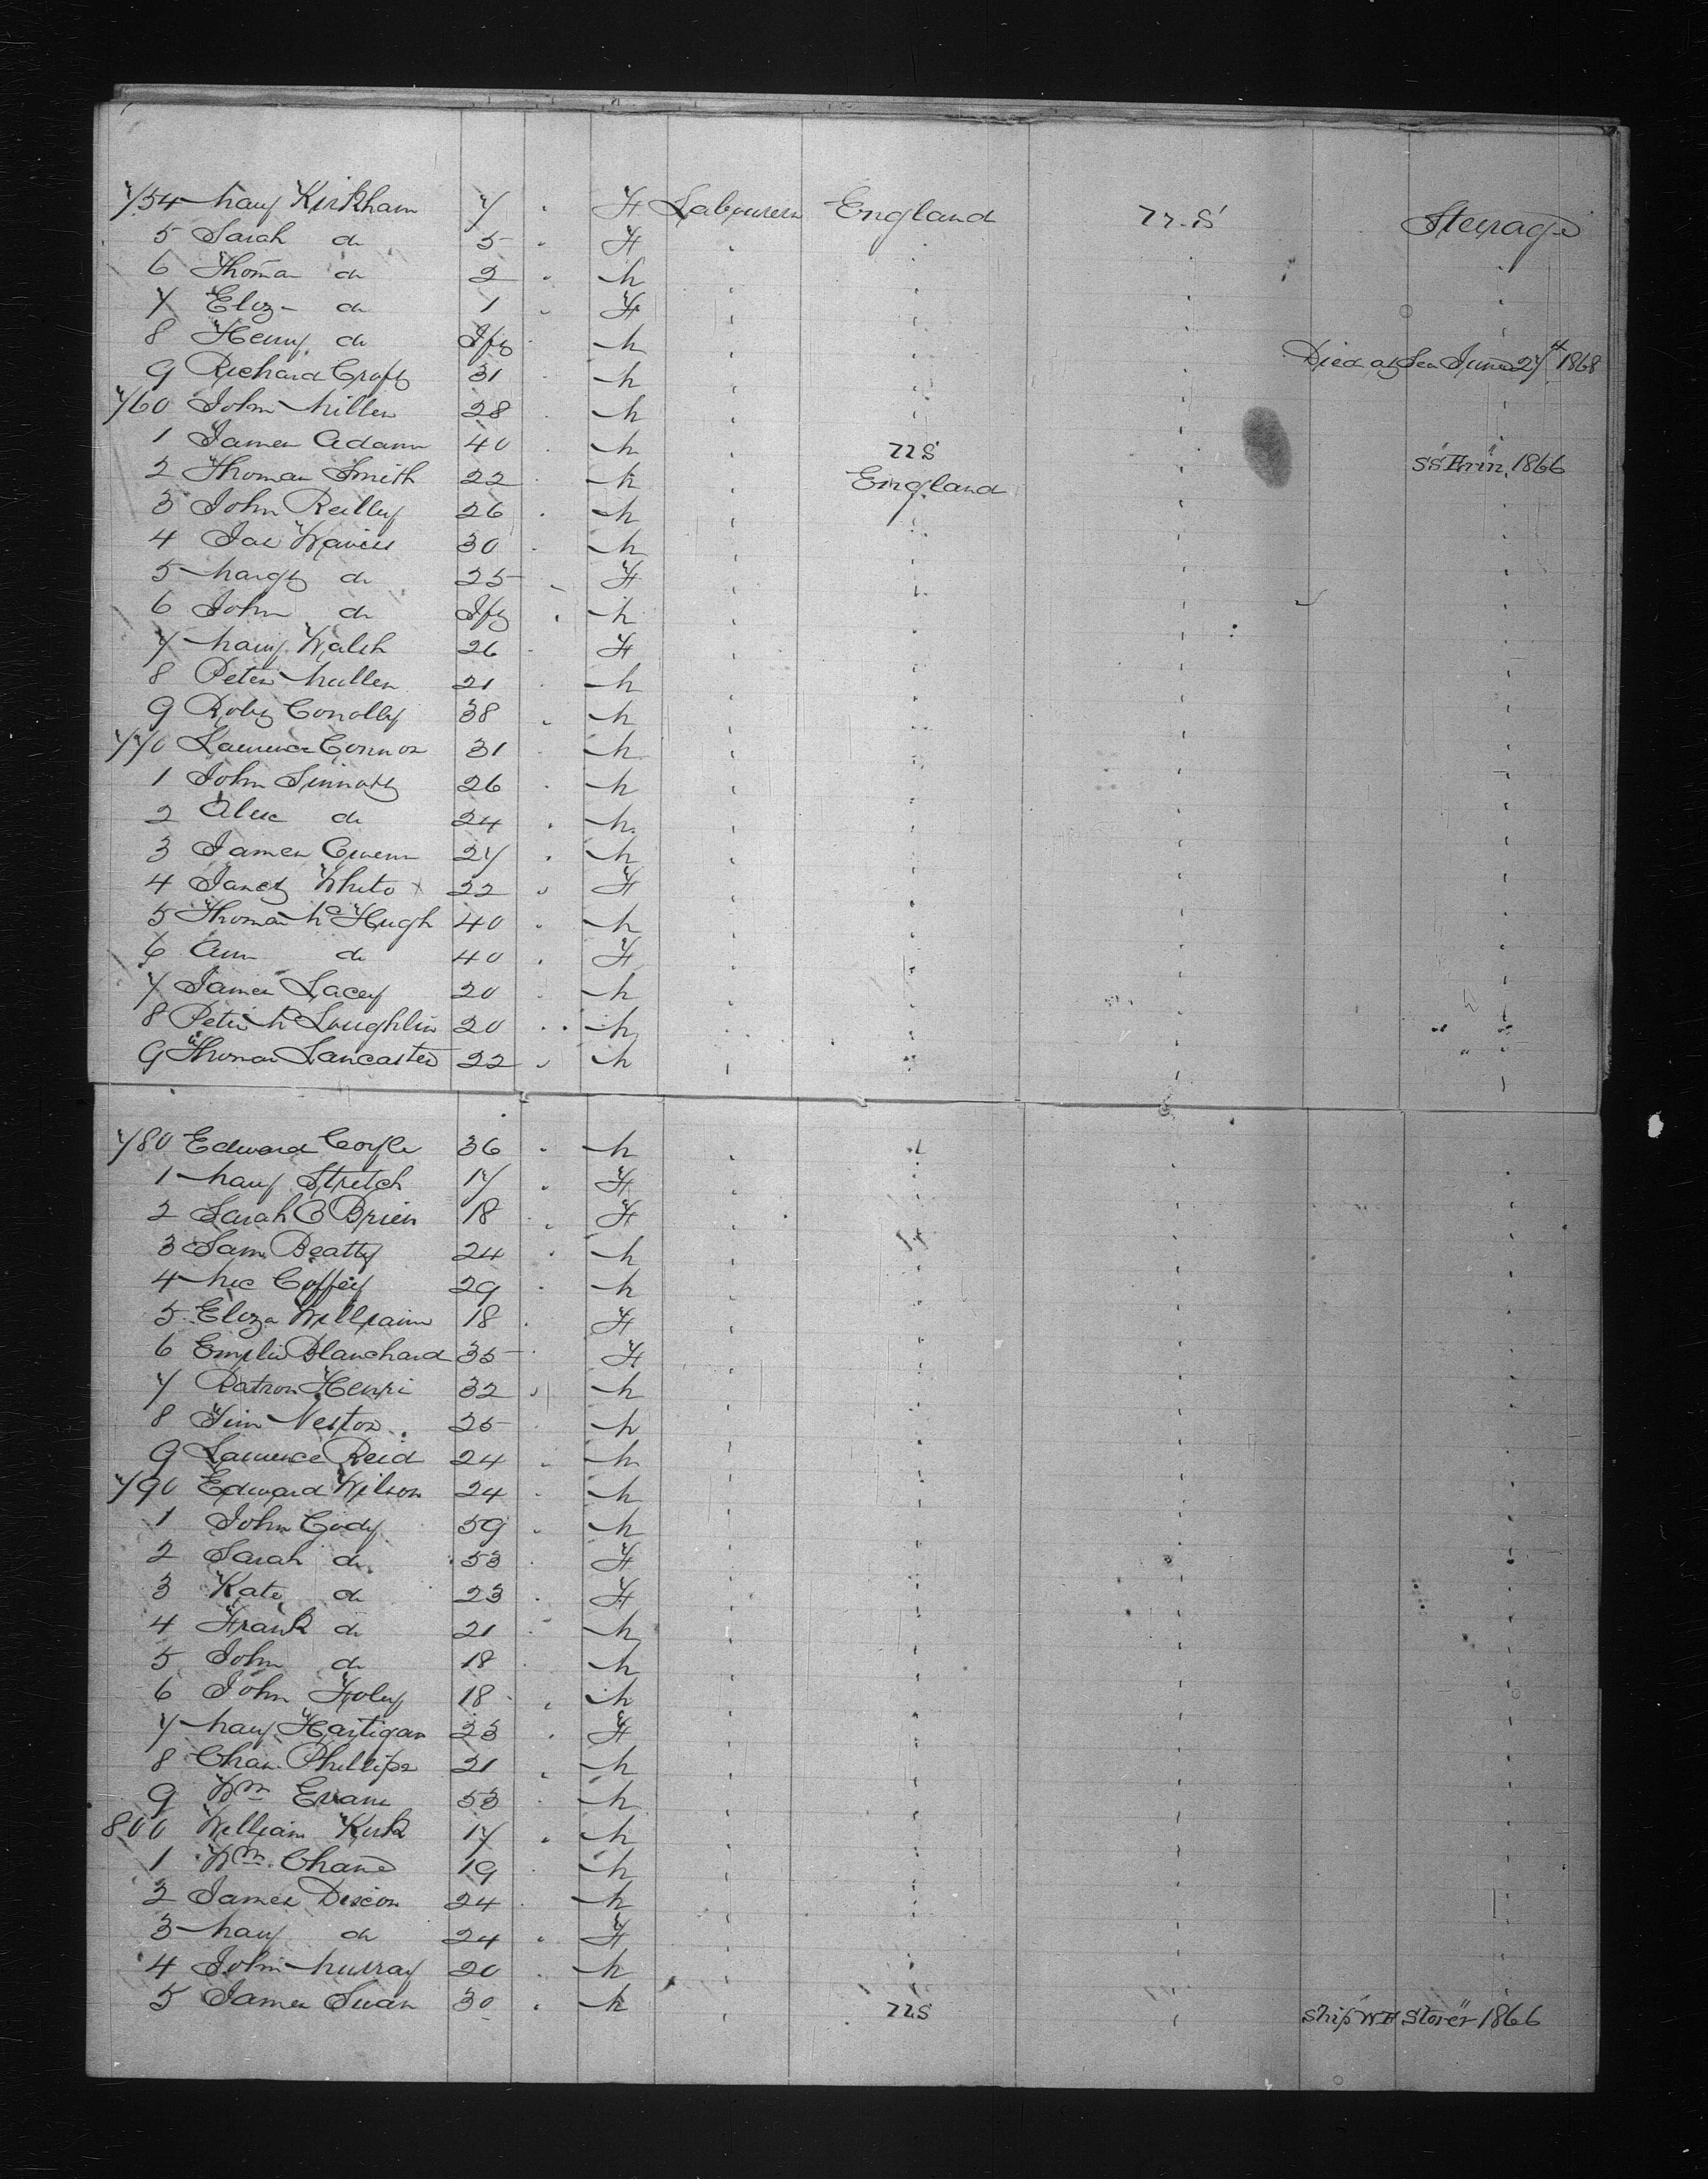 754 Mary Kirkham 7 " F Labourers England U.S Steerage
5 Sarah do 5 " F
6 Thomas do 2 " M
7 Eliz do 1 " F
8 Henry do Inft " M Died at Sea June 27th 1868
9 Richard Croft 31 " M
760 John Miller 28 " M
1 James Adams 40 " M " U S " SS "Erin" 1866
2 Thomas Smith 22 " M " England
3 John Reilly 26 " M
4 Jas 30 " M
5 Margt do 25 " F
6 John do Inft " M
7 Mary Walsh 26 " F
8 Peter Mullen 21 " M
9 Robt Conolly 38 " M
770 Laurence Connor 31 " M
1 John Sinnott 26 " M
2 do 24 " M
3 James Owens 27 " M
4 Janet White x 22 " F
5 Thomas McHugh 40 " M
6 Ann do 40 " F
7 James Lacey 20 " M
8 Peter McLoughlin 20 " M
9 Thomas Lancaster 22 " M
780 Edward Coyle 36 " M
1 Mary Stretch 17 " F
2 Sarah O Brien 18 " F
3 Sam Beatty 24 " M
4 Mic Coffey 29 " M
5 Eliza Williams 18 " F
6 Emelie Blanchard 35 " F
7 Henri 32 " M
8 Nestor 25 " M
9 Laurence Reid 24 " M
790 Edward Wilson 24 " M
1 John Cody 59 " M
2 Sarah do 53 " F
3 Kate do 23 " F
4 Frank do 21 " M
5 John do 18 " M
6 John Foley 18 " M
7 Mary Hartigan 23 " F
8 Chas Phillips 21 " M
9 Wm Evans 53 " M
800 William Kirk 17 " M
1 Wm 19 " M
2 James 24 " M
3 Mary do 24 " F
4 John Murray 20 " M
5 James Swan 30 " M " U S " Ship "W F Storer" 1866